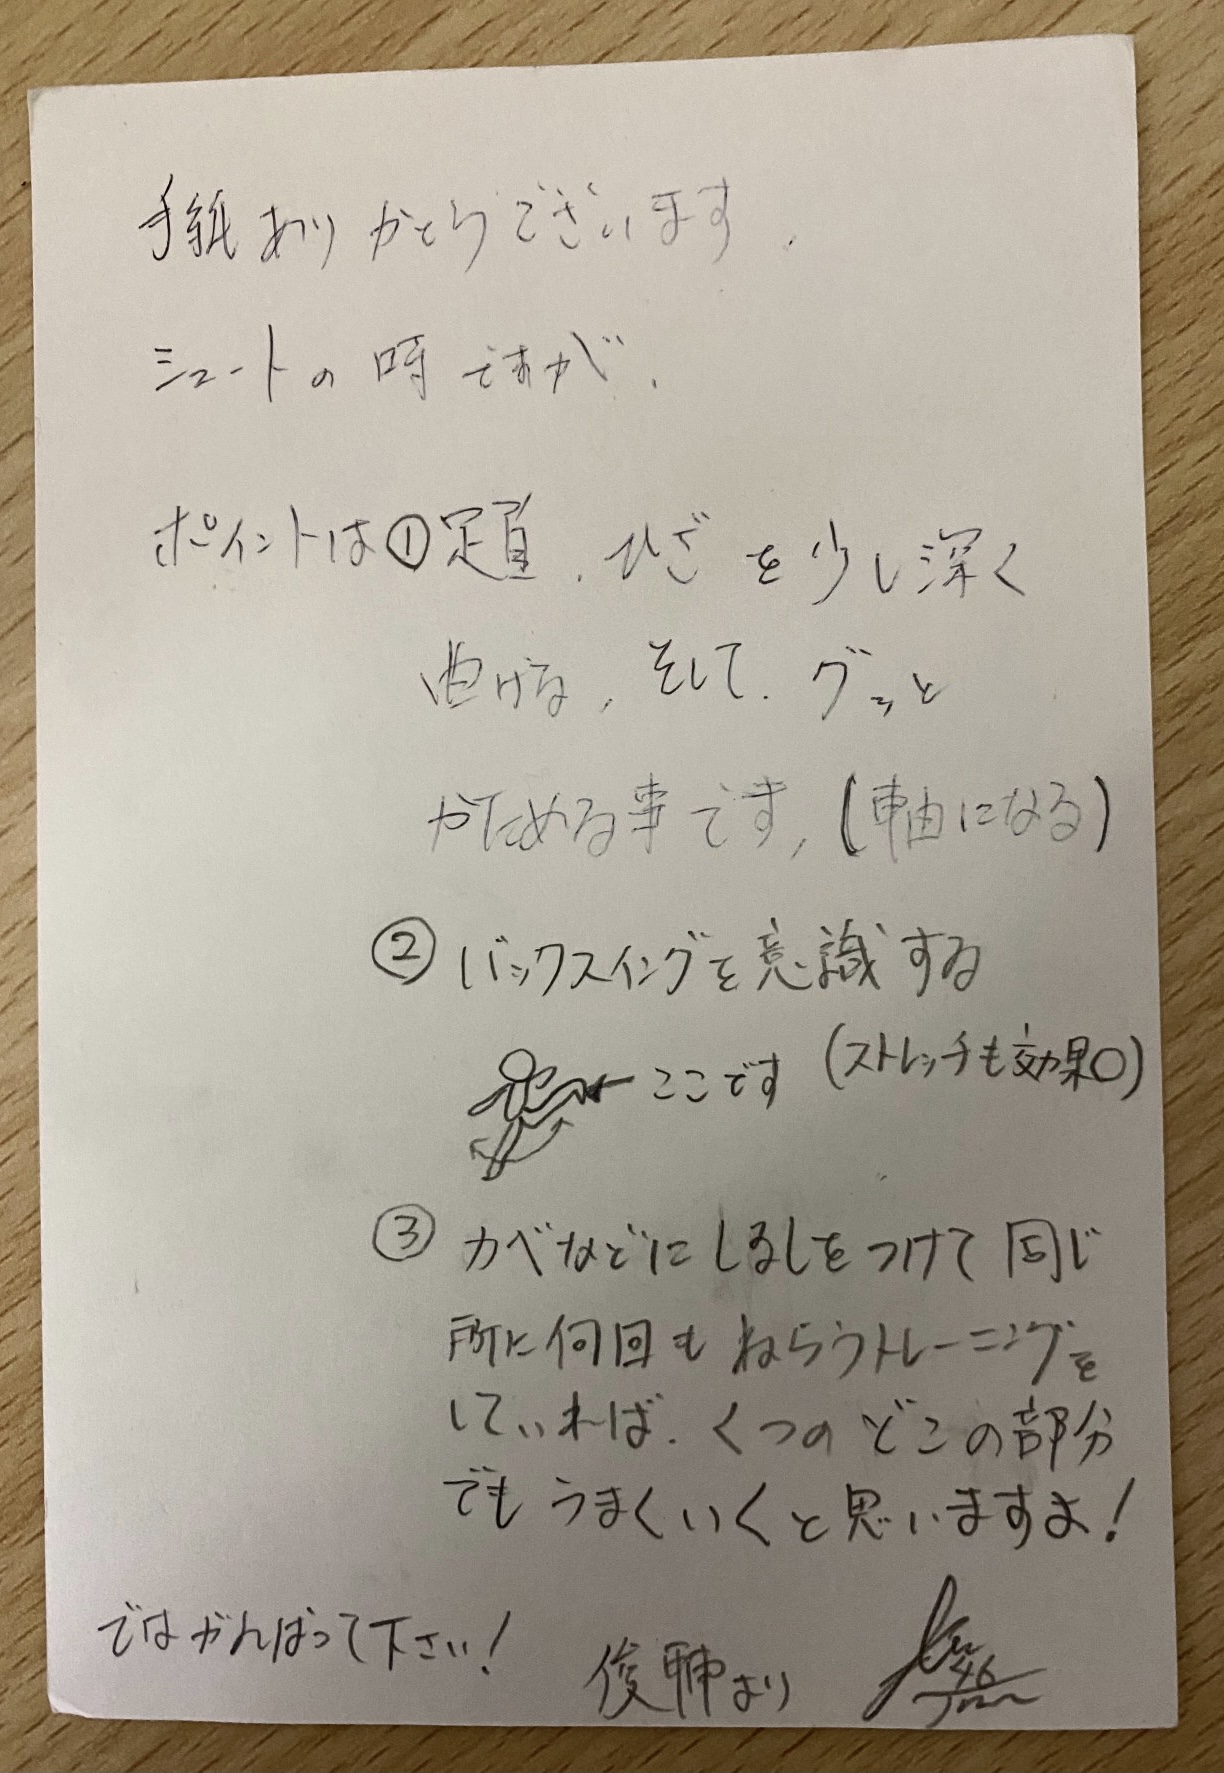 手紙ありがとうございます.
シュートの時ですが.
ポイントは①足首.ひざを少し深く
曲げる,そして.グッと
かためる事です,(軸になる)
②バックスイングを意識する
ここです(ストレッチも効果○)
③カベなどにしるしをつけて同じ
所に何回もねらうトレーニングを
していれば.くつのどこの部分
でもうまくいくと思いますよ!
ではがんばって下さい! 俊輔より 46